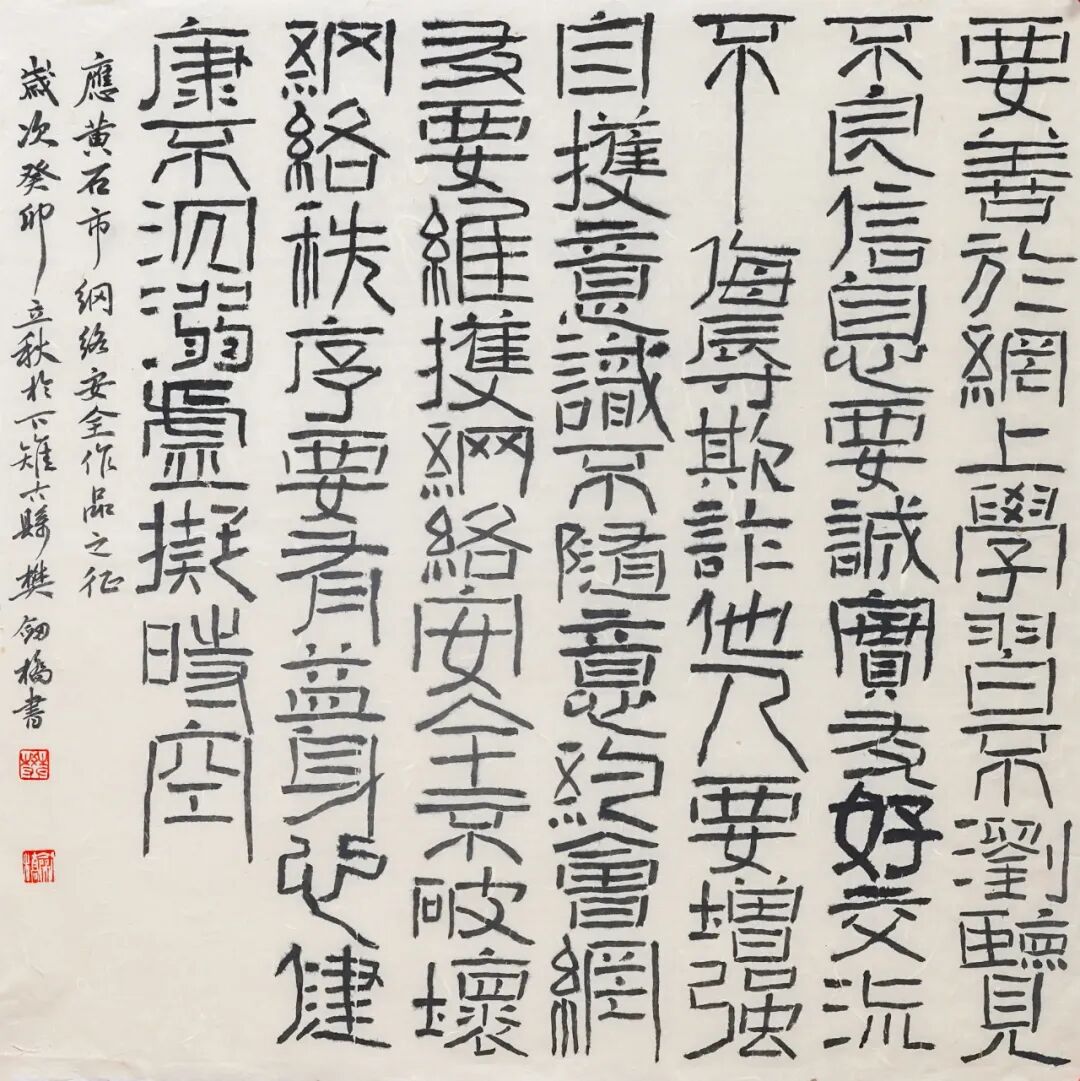 要善於網上學習不瀏覽
不良信息要誠實友好交流
不侮辱欺詐他人要增强
自擭意識不隨意約會網
友要維擭網絡安全不破壞
網絡秩序要有益身心健
康不沉溺虛擬時空
應黄石市網絡安全作品之征
歲次癸卯立秋於下雉縣樊劍橋書